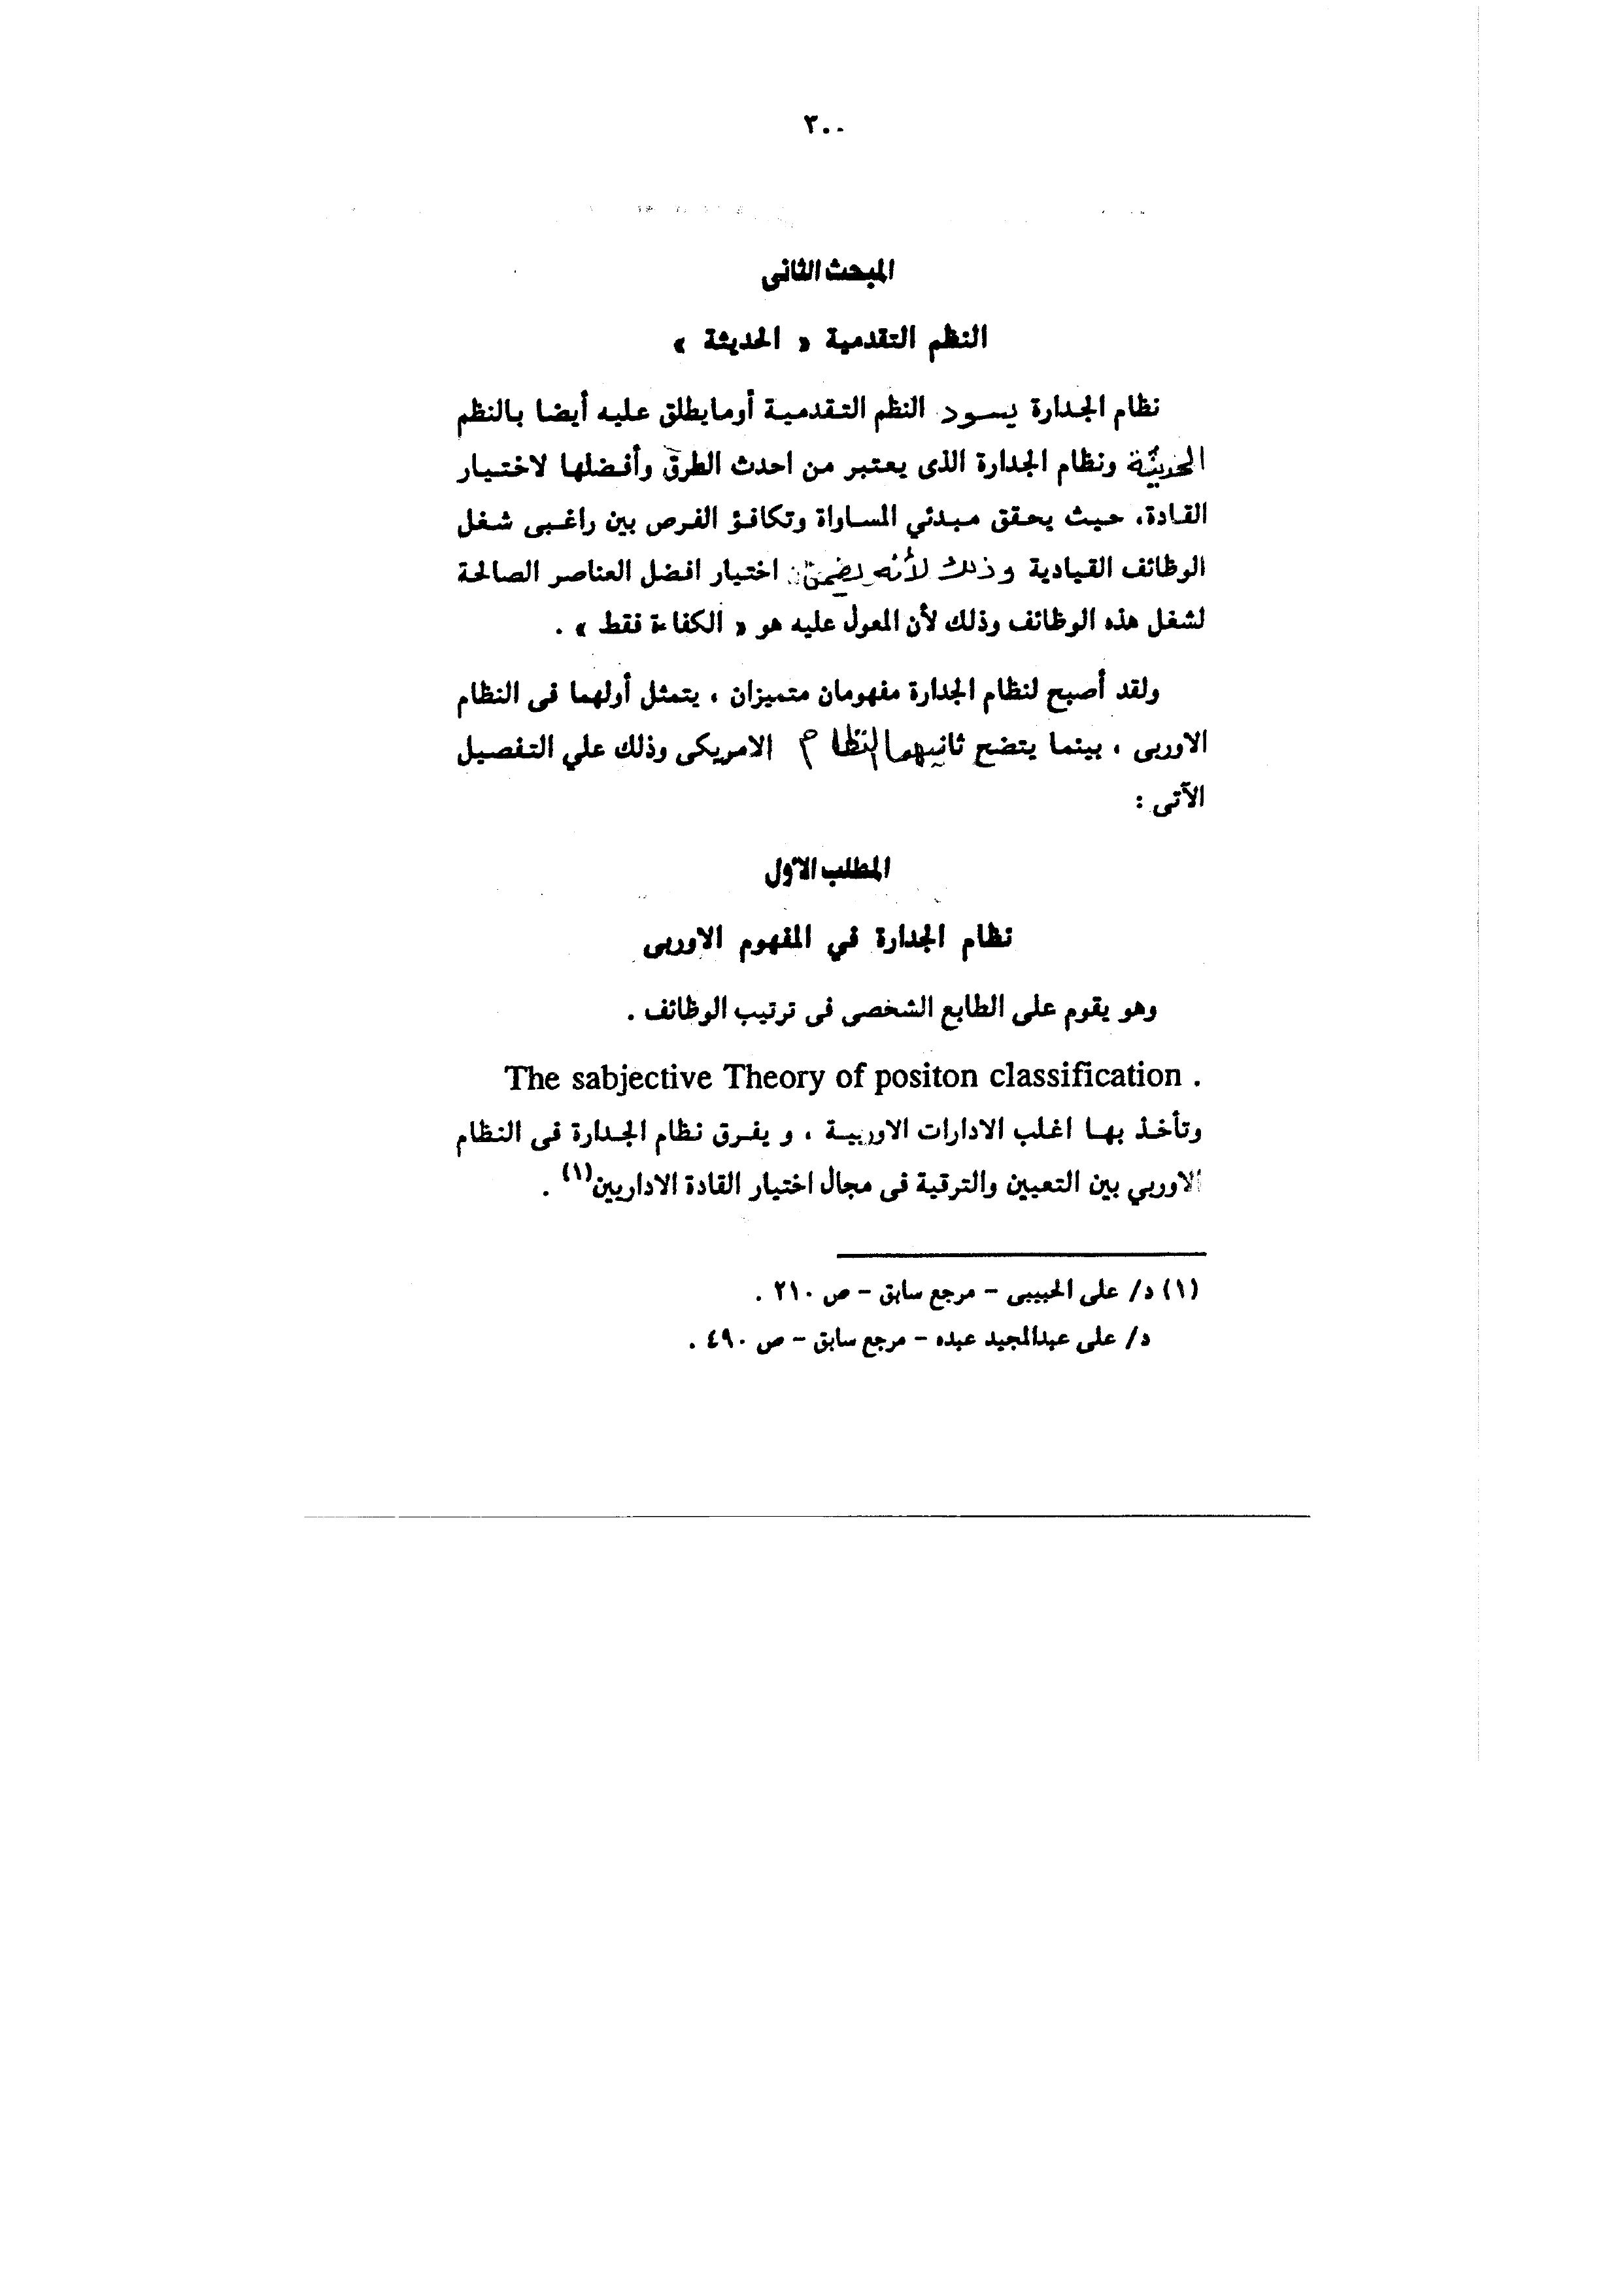 ٣٠٠
المبحث الثانى
النظم التقدمية « الحديثة »
نظام الجدارة يسود النظم التقدمية أومايطلق عليه أيضا بالنظم
الحديثة ونظام الجدارة الذى يعتبر من احدث الطرق وأفضلها لاختيار
القادة، حيث يحقق مبدئي المساراة وتكافؤ الفرص بين راغبى شغل
الوظائف القيادية وذلك لأنه يضمن اختيار افضل العناصر الصالحة
لشغل هذه الوظائف وذلك لأن المعول عليه هو « الكفاءة فقط » .
ولقد أصبح لنظام الجدارة مفهومان متميزان ، يتمثل أولهما فى النظام
الاوربى ، بينما يتضح ثانيهما النظام الامريكى وذلك علي التفصيل
الآتى :
المطلب الأول
نظام الجدارة في المفهوم الاوربى
وهو يقوم على الطابع الشخصى فى ترتيب الوظائف .
The sabjective Theory of positon classification .
وتأخذ بها اغلب الادارات الاوربية ، و يفرق نظام الجدارة فى النظام
الاوربي بين التعيين والترقية فى مجال اختيار القادة الاداريين(١) .
(١) د/ على الحبيبى – مرجع سابق – ص ٢١٠ .
د/ على عبدالمجيد عبده – مرجع سابق – ص ٤٩٠ .